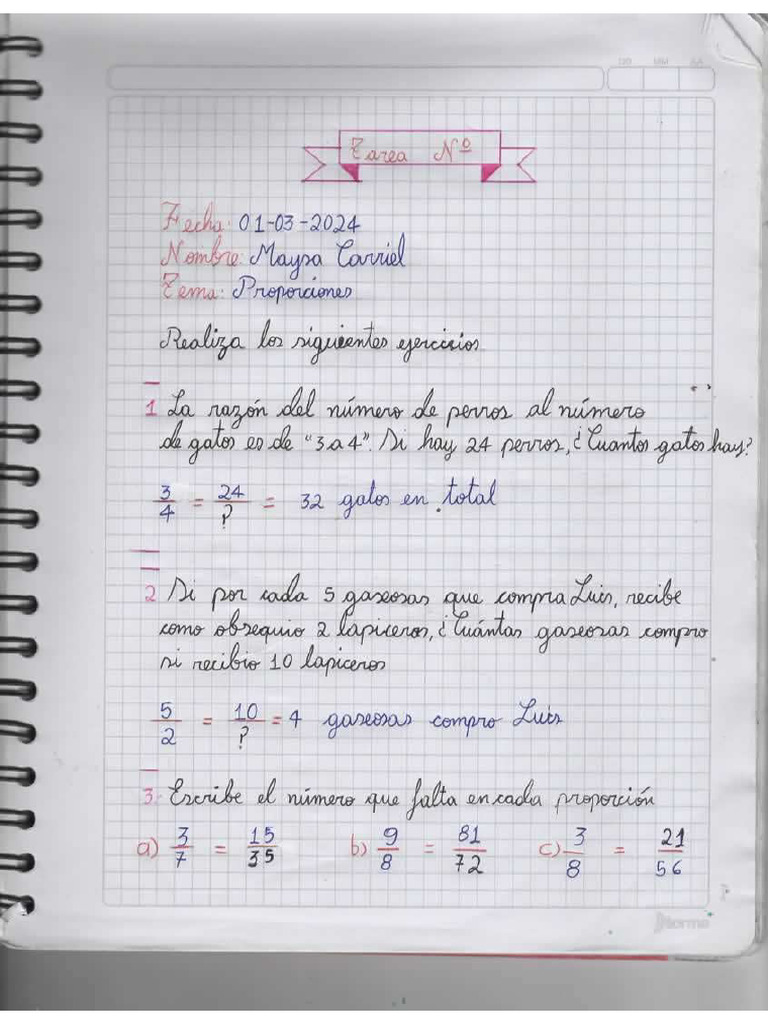 DD MM AA
Tarea Nº
Fecha: 01-03-2024
Nombre: Maysa Carriel
Tema: Proporciones
Realiza los siguientes ejercicios
1 La razón del número de perros al número
de gatos es de "3 a 4". Si hay 24 perros, ¿Cuantos gatos hay?
3/4 = 24/? = 32 gatos en total
2 Si por cada 5 gaseosas que compra Luis, recibe
como obsequio 2 lapiceros, ¿Cuántas gaseosas compro
si recibio 10 lapiceros
5/2 = 10/? = 4 gaseosas compro Luis
3. Escribe el número que falta en cada proporción
a) 3/7 = 15/35 b) 9/8 = 81/72 c) 3/8 = 21/56
Norma